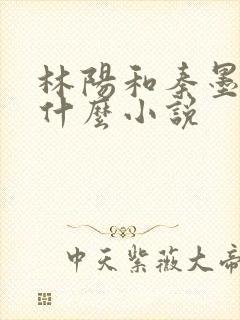 林陽和秦墨
什麼小說
中天紫薇大帝